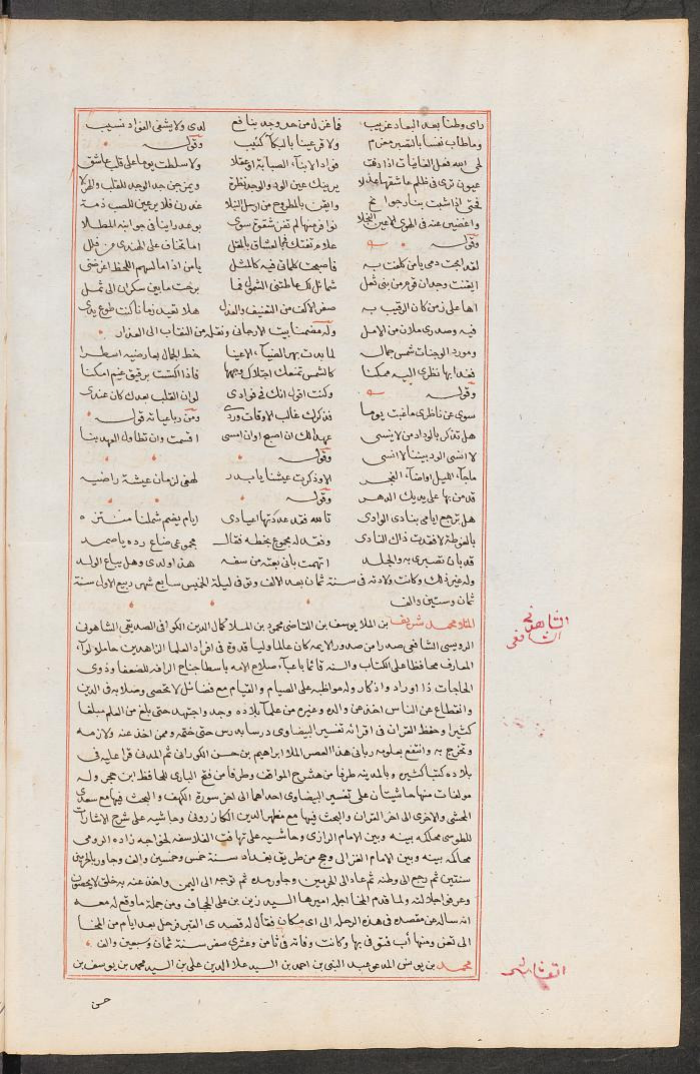 راى وطنا بعد البعاد غريب فما غزل من حد وجد بنافع لدى ولا يشفى الفواد نسيب
وما طاب نفسا بالقصير مغرم ولا قر عينا بالبكاء كئيب وقوله
لحى الله فعل الغانيات اذا رقت فواد الابناء الصبابة او عقلا ولا سلطت يوما على قلب عاشق
عيون ترى فى ظلم عاشقها عدلا يرينك عين الود والوجد نظرة ويمزجن جد الوجد للقلب والهزلا
فحتى اذا شبت بنار جوانح وايقن بالمطروح من ارسل النبلا غدرن فلا يرعين للصب ذمة
واغضين عنه فى الهوى الاعين النجلا نوافر منها لم تفز شقوة سوى بوعد راينا فى جوابنه المطلا
وقوله علام تفتك فيّ العشاق بالمقل اما تخاف على الهندى من فلل
لقد ابحت دمى يا من كلفت به فاصبحت كلماتى فيه كالمثل يا من اذا ما لسهم اللحظ اعرضنى
ايقنت وجدان قومى من بنى ثعل شمائل لك عاطتنى الشمول فما برحت ما بين سكران الى ثمل
اها على زمن كان الرقيب به صفر الاكف من التعنيف والعذل هلا تعيد زمانا كنت طوع يدى
فيه وصدرى ملان من الامل وله مضمنا بيت الارجانى ونقله من النقاب الى العذار
ومورد الوجنات شمس جماله لما بدت بهر الضياء الاعينا خط الجمال بعارضيه اسطرا
فغدا بها نظرى اليه ممكنا كالشمس تمنعك اجتلاك وجهها فاذا اكتست برقيق غيم امكنا
وقوله وكنت اقول انك فى فوادى لوان القلب بعدك كان عندى
سوى عن ناظرى ما غبت يوما فذكرك غالب الاوقات وردى ومن رباعياته قوله
هل تذكر بالوداد من لا ينسى عهدا لك ان اصبح او ان امسى اقسمت وان تطاول العهد بنا
لا انسى الود بيننا لا انسى وقوله
ماجاء الليل اواضاء الفجر الا وذكرت عيشنا يا بدر لهفى لزمان عيشة راضية
قد من بها على يديك الدهر وقوله
هل ترجع ايامى بنادى الوادى تالله فقد عددتها اعيادى ايام يضم شملنا منتزه
بالغوطة لا فقدت ذاك النادى وفقد له مجموع بخطه فقال مجموعى ضاع رده يا صمد
قد بان تصبرى به والجلد اتهمت بانى بعته من سفه هذا ولدى وهل يباع الولد
وله غير ذلك وكانت ولادته فى سنة ثمان بعد الالف وتوفى ليلة الخميس سابع شهر ربيع الاول سنة
ثمان وستين والف
الملا محمد شريف بن الملا يوسف بن القاضى محمود بن الملا كمال الدين الكورانى الصديقى الشاهونى
الرويسى الشافعى صدرا من صدور الايمه كان عالما وليا قدوة فى افراد العلما الزاهدين حاملا لواء
المعارف محافظا على الكتاب والسنه قائما باعباء سلام الامه باسطا جناح الرافه للضعفا وذوى
الحاجات ذا اوراد واذكار وله مواظبه على الصيام والقيام مع فضائل لا تحصى وصلابه فى الدين
وانقطاع عن الناس اخذ عن والده وغيره من علماء بلاده وجد واجتهد حتى بلغ من العلم مبلغا
كثيرا وحفظ القران فى اقرائه تفسير البيضاوى درسا بدرس حتى ختمه وممن اخذ عنه ولازمه
وتخرج به وانتفع بعلومه ربانى هذا العصر الملا ابراهيم بن حسن الكورانى ثم المدنى قرا عليه فى
بلاده كتبا كثيره وبالمدينه طرفا من شرح المواقف وطرفا من فتح البارى للحافظ ابن حجر وله
مولفات منها حاشيتان على تفسير البيضاوى احداهما الى اخر سورة الكهف والبحث فيها مع سعدى
المحشى والاخرى الى اخر القران والبحث فيها مع مظهر الدين الكازرونى وحاشيه على شرح الاشارات
للطوسى محاكمه بينه وبين الامام الرازى وحاشيه على تهافت الفلاسفه لخواجه زاده الرومى
محاكمه بينه وبين الامام الغزالى وحج من طريق بغداد سنة خمس وخمسين والف وجاور بالحرمين
سنتين ثم رجع الى وطنه ثم عاد الى الحرمين وجاور مده ثم توجه الى اليمن واخذ عنه به خلق لا يحصون
وعرفوا جلالته ولما قدم المخا اجله اميرها السيد زيد بن على الجحاف ومن جملة ما وقع له معه
انه ساله عن مقصده فى هذه الرحله الى اى مكان فقال له قصدى القبر فرحل بعد ايام من المخا
الى تعز ومنها الى أب فتوفى بها وكانت وفاته فى ثامن وعشرى صفر سنة ثمان وسبعين والف
محمد بن يونس المدعو عبد النبى بن احمد بن السيد علاء الدين على بن السيد محمد بن يوسف بن
حسن
الشاهونى
الشافعى